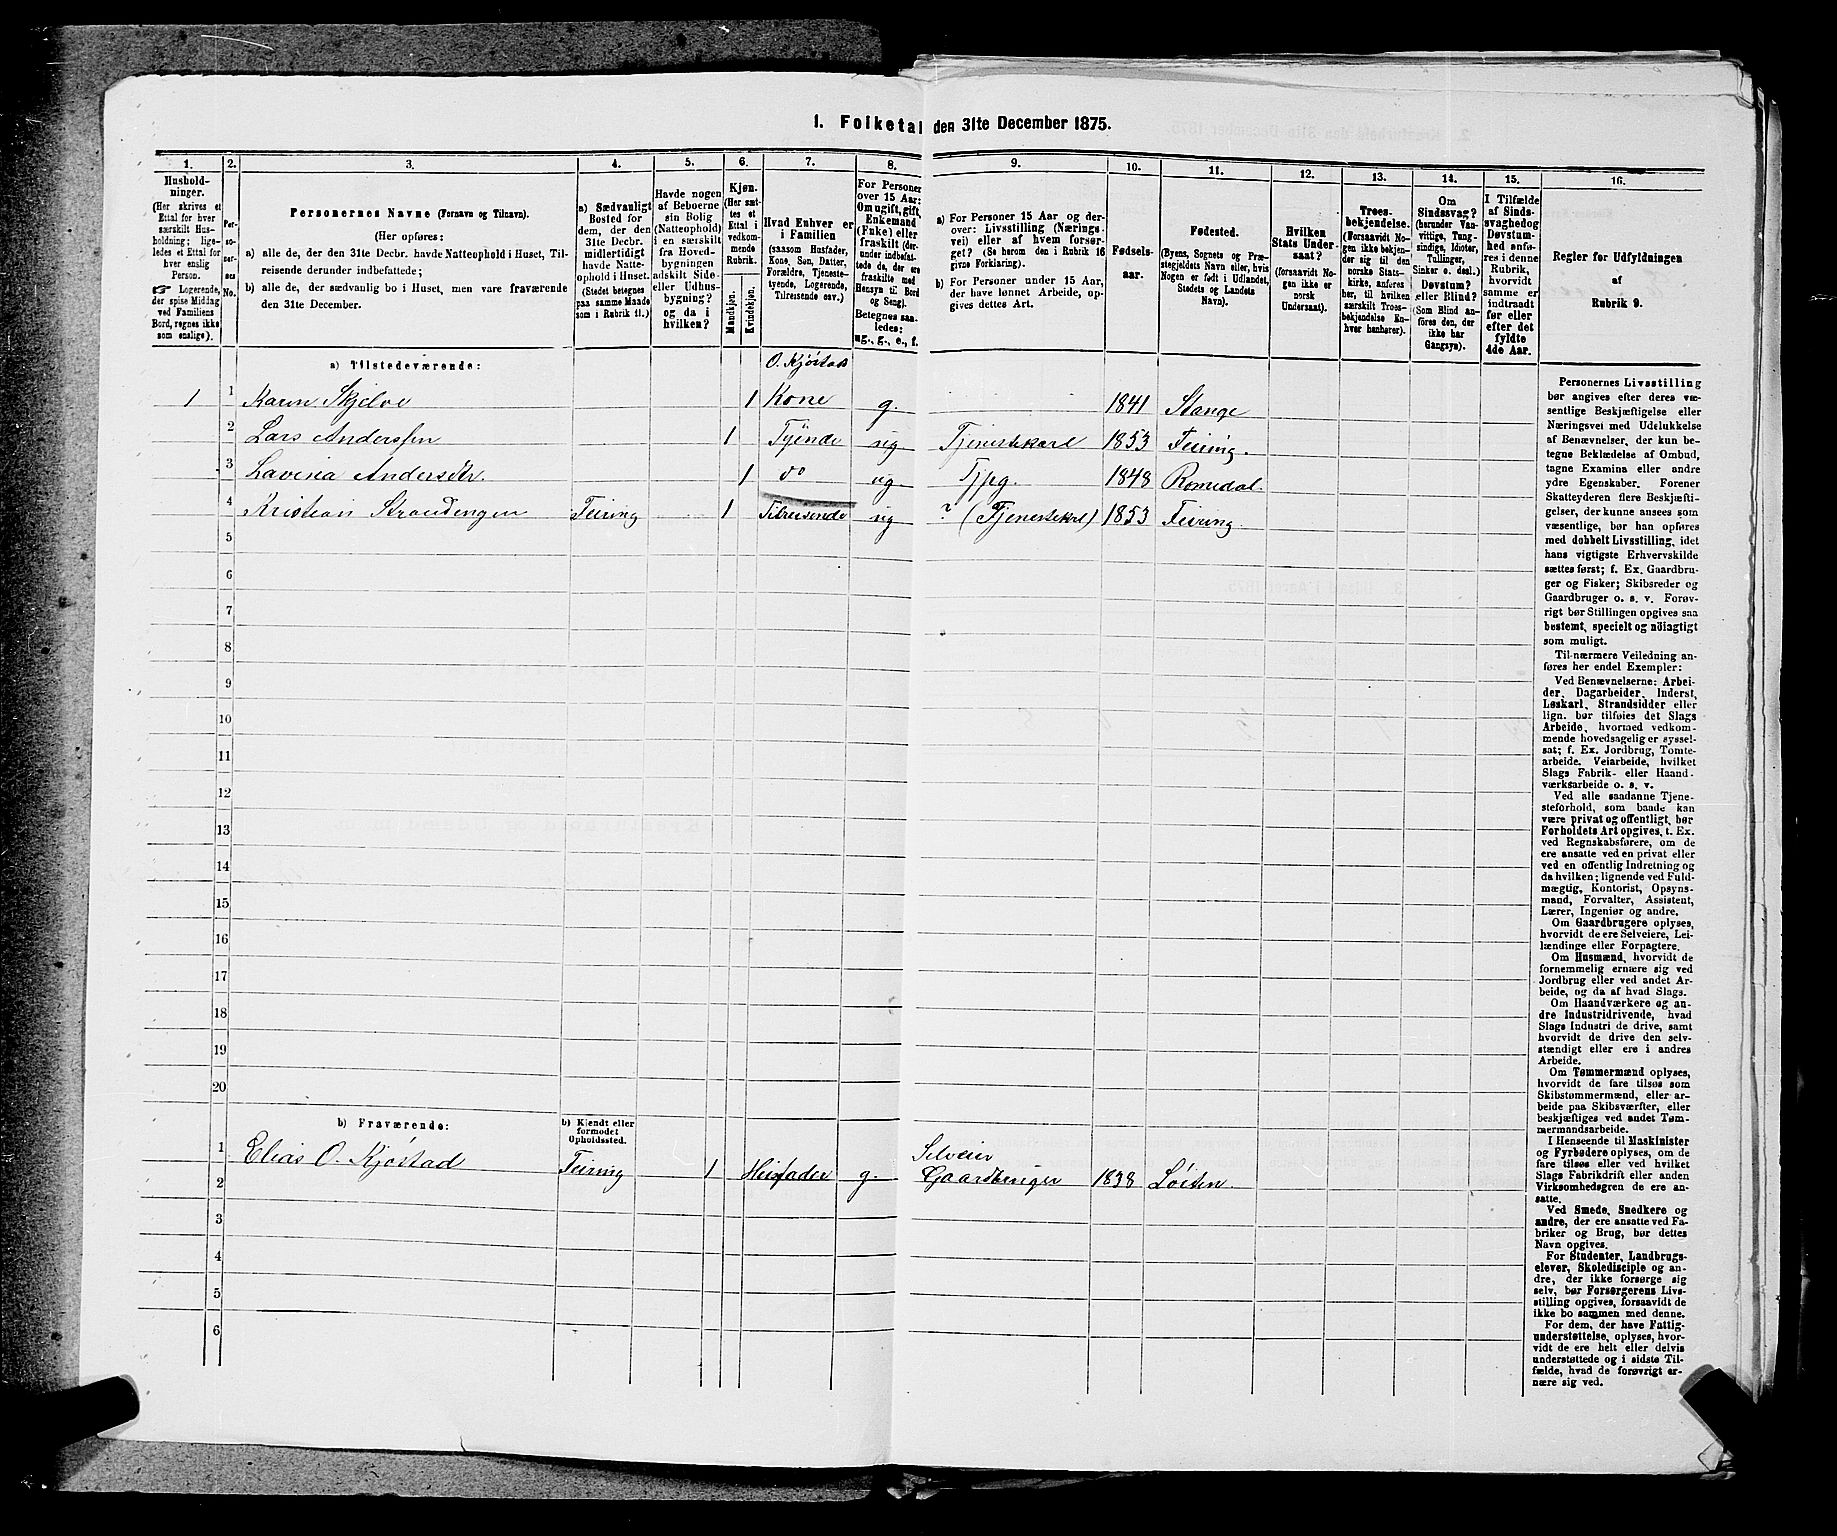 1. Folketal den 31te December 1875.
1. 2. 3. 4. 5. 6. 7. 8. 9. 10. 11. 12. 13. 14. 15. 16.
Hushold-
ninger.
(Her skrives et
Ettal for hver
særskilt Hus-
holdning; lige-
ledes et Ettal for
hver enslig
Person.
☞ Logerende,
der spise Middag
ved Familiens
Bord, regnes ikke
som enslige).
Per-
so-
ner-
nes
No.
Personernes Navne (Fornavn og Tilnavn).
(Her opføres:
a) alle de, der den 31te Decbr. havde Natteophold i Huset, Til-
reisende derunder indbefattede;
b) alle de, der sædvanlig bo i Huset, men vare fraværende
den 31te December.
a) Sædvanligt
Bosted for
dem, der den
31te Decbr.
midlertidigt
havde Natte-
ophold i Huset.
(Stedet betegnes
paa samme Maade
som i Rubrik 11.)
Havde nogen
af Beboerne
sin Bolig
(Natteophold)
i en særskilt
fra Hoved-
bygningen
adskilt Side-
eller Udhus-
bygning?
og da i
hvilken?
Kjøn.
(Her sæt-
tes et
Ettal i
vedkom-
mende
Rubrik.
Mandkjøn.
Kvindekjøn.
Hvad Enhver er
i Familien
(saasom Husfader,
Kone, Søn, Datter,
Forældre, Tjeneste-
tyende, Logerende,
Tilreisende osv.)
For Personer
over 15 Aar:
Om ugift, gift,
Enkemand
(Enke) eller
fraskilt (der-
under indbefat-
tede de, der ere
fraskilte med
Hensyn til Bord
og Seng).
Betegnes saa-
ledes:
ug., g., e., f.
a) For Personer 15 Aar og der-
over: Livsstilling (Nærings-
vei) eller af hvem forsør-
get? (Se herom den i Rubrik 16
givne Forklaring).
b) For Personer under 15 Aar,
der have lønnet Arbeide, op-
gives dettes Art.
Fødsels-
aar.
Fødested.
(Byens, Sognets og Præ-
stegjeldets Navn eller, hvis
Nogen er født i Udlandet,
Stedets og Landets
Navn).
Hvilken
Stats Under-
saat?
(forsaavidt No-
gen ikke er
norsk
Undersaat).
Troes-
bekjendelse.
(Forsaavidt No-
gen ikke bekjen-
der sig til den
norske Stats-
kirke, anføres
her, til hvilken
særskilt Troes-
bekjendelse En-
hver henhører).
Om
Sindssvag?
(herunder Van-
vittige, Tung-
sindige, Idioter,
Tullinger,
Sinker o. desl.)
Døvstum?
eller Blind?
(Som Blind an-
føres den, der
ikke har
Gangsyn).
I Tilfælde
af Sinds-
svaghed og
Døvstum-
hed anfø-
res i denne
Rubrik,
hvorvidt
samme er
indtraadt
før eller
efter det
fyldte
4de Aar.
Regler for Udfyldningen
af
Rubrik 9.
a) Tilstedeværende:
O. Kjöstad
1 1 Karen Skjelve 1 Kone g. 1841 Stange
2 Lars Anderssen 1 Tyende ug Tjenestekarl 1853 Feiring.
3 Lavina Andersdtr. 1 do ug Tjpg. 1848 Romedal.
4 Kristian Strandengen Feiring 1 Tilreisende ug ? (Tjenestekarl) 1853 Feiring
5
6
7
8
9
10
11
12
13
14
15
16
17
18
19
20
b) Fraværende:
b) Kjendt eller
formodet
Opholdssted.
1 Elias O. Kjöstad Feiring 1 Husfader g. Selveier
Gaardbruger 1838 Löiten.
2
3
4
5
6
Personernes Livsstilling
bør angives efter deres væ-
sentlige Beskjæftigelse eller
Næringsvei med Udelukkelse
af Benævnelser, der kun be-
tegne Beklædelse af Ombud,
tagne Examina eller andre
ydre Egenskaber. Forener
Skatteyderen flere Beskjæfti-
gelser, der kunne ansees som
væsentlige, bør han opføres
med dobbelt Livsstilling, idet
hans vigtigste Erhvervskilde
sættes først; f. Ex. Gaardbru-
ger og Fisker; Skibsreder og
Gaardbruger o. s. v. Forøv-
rigt bør Stillingen opgives saa
bestemt, specielt og nöiagtigt
som muligt.
Til nærmere Veiledning an-
føres her endel Exempler:
Ved Benævnelserne: Arbei-
der, Dagarbeider, Inderst,
Løskarl, Strandsidder eller
lign. bør tilføies det Slags
Arbeide, hvormed vedkom-
mende hovedsagelig er syssel-
sat; f. Ex. Jordbrug, Tomte-
arbeide, Veiarbeide, hvilket
Slags Fabrik- eller Haand-
værksarbeide o. s. v.
Ved alle saadanne Tjene-
steforhold, som baade kan
være privat og offentligt, bør
Forholdets Art opgives, t. Ex.
ved Regnskabsførere, om de
ere ansatte ved en privat eller
ved en offentlig Indretning og
da hvilken; lignende ved Fuld-
mægtig, Kontorist, Opsyns-
mand, Forvalter, Assistent,
Lærer, Ingeniør og andre.
Om Gaardbrugere oplyses,
hvorvidt de ere Selveiere, Lei-
lændinge eller Forpagtere.
Om Husmænd, hvorvidt de
fornemmelig ernære sig ved
Jordbrug eller ved andet Ar-
beide, og da af hvad Slags.
Om Haandværkere og an-
dre Industridrivende, hvad
Slags Industri de drive, samt
hvorvidt de drive den selv-
stændigt eller ere i andres
Arbeide.
Om Tømmermænd oplyses,
hvorvidt de fare tilsøs som
Skibstømmermænd, eller ar-
beide paa Skibsværfter, eller
beskjæftiges ved andet Tøm-
mermandsarbeide.
I Henseende til Maskinister
og Fyrbødere oplyses, om de
fare tilsøs eller ved hvilket
Slags Fabrikdrift eller anden
Virksomhedsgren de ere an-
satte.
Ved Smede, Snedkere og
andre, der ere ansatte ved Fa-
briker og Brug, bør dettes
Navn opgives.
For Studenter, Landbrugs-
elever, Skoledisciple og an-
dre, der ikke forsørge sig
selv, bør Forsørgerens Livs-
stilling opgives, forsaavidt de
ikke bo sammen med denne.
For dem, der have Fattig-
understøttelse, oplyses, hvor-
vidt de ere helt eller delvis
understøttede og i sidste Til-
fælde, hvad de forøvrigt er-
nære sig ved.